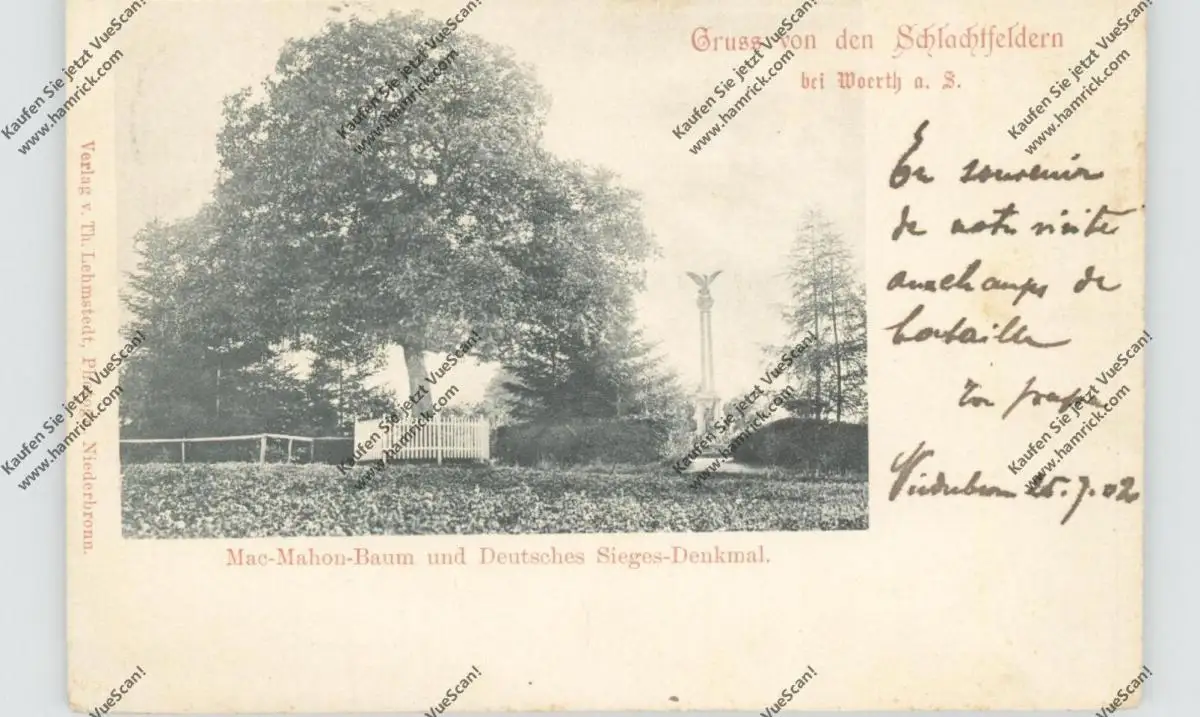 Gruss von den Schlachtfeldern
bei Woerth a. S.
En souvenir
de notre visite
aux champs de
bataille
Niederbronn 25.7.02
Mac-Mahon-Baum und Deutsches Sieges-Denkmal.
Verlag v. Th. Lehmstedt, Niederbronn.
Kaufen Sie jetzt VueScan!
www.hamrick.com
Kaufen Sie jetzt VueScan!
www.hamrick.com
Kaufen Sie jetzt VueScan!
www.hamrick.com
Kaufen Sie jetzt VueScan!
www.hamrick.com
Kaufen Sie jetzt VueScan!
www.hamrick.com
Kaufen Sie jetzt VueScan!
www.hamrick.com
Kaufen Sie jetzt VueScan!
www.hamrick.com
Kaufen Sie jetzt VueScan!
www.hamrick.com
VueScan!
VueScan!
VueScan!
VueScan!